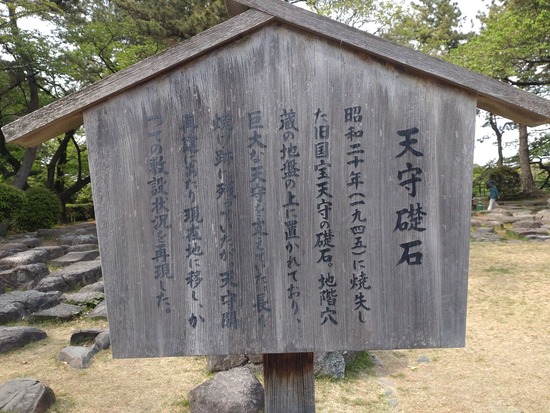 天守礎石
昭和二十年(一九四五)に焼失し
た旧国宝天守の礎石。地階穴
蔵の地盤の上に置かれており、
巨大な天守を支えていた。長く
焼け跡に残っていたが、天守閣
再建にあたり現在地に移し、か
つての敷設状況を再現した。